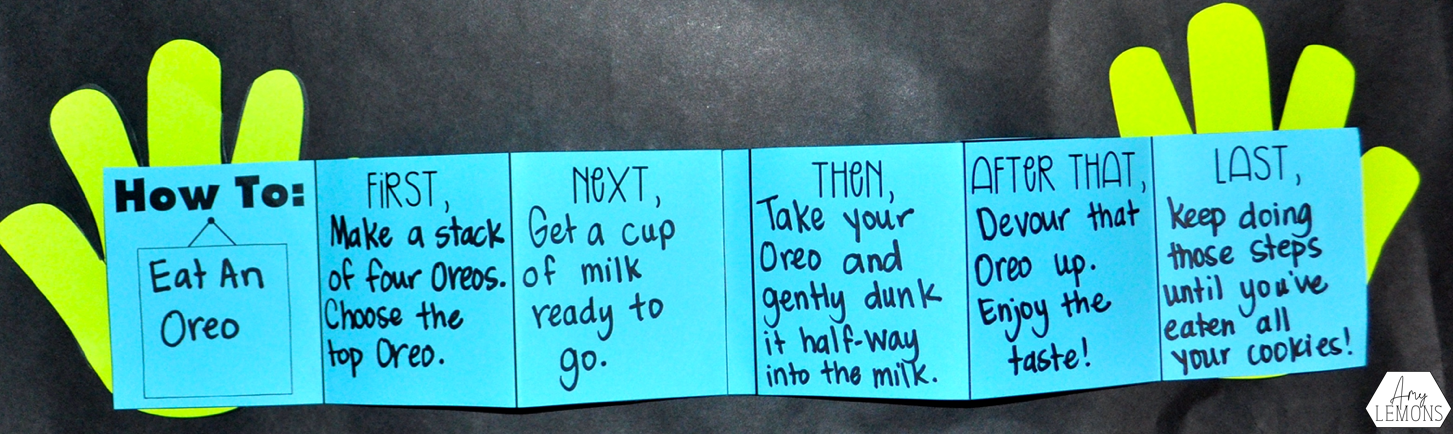 How To:
Eat An
Oreo
FIRST,
Make a stack
of four Oreos.
Choose the
top Oreo.
NEXT,
Get a cup
of milk
ready to
go.
THEN,
Take your
Oreo and
gently dunk
it half-way
into the milk.
AFTER THAT,
Devour that
Oreo up.
Enjoy the
taste!
LAST,
keep doing
those steps
until you've
eaten all
your cookies!
Amy
LEMONS